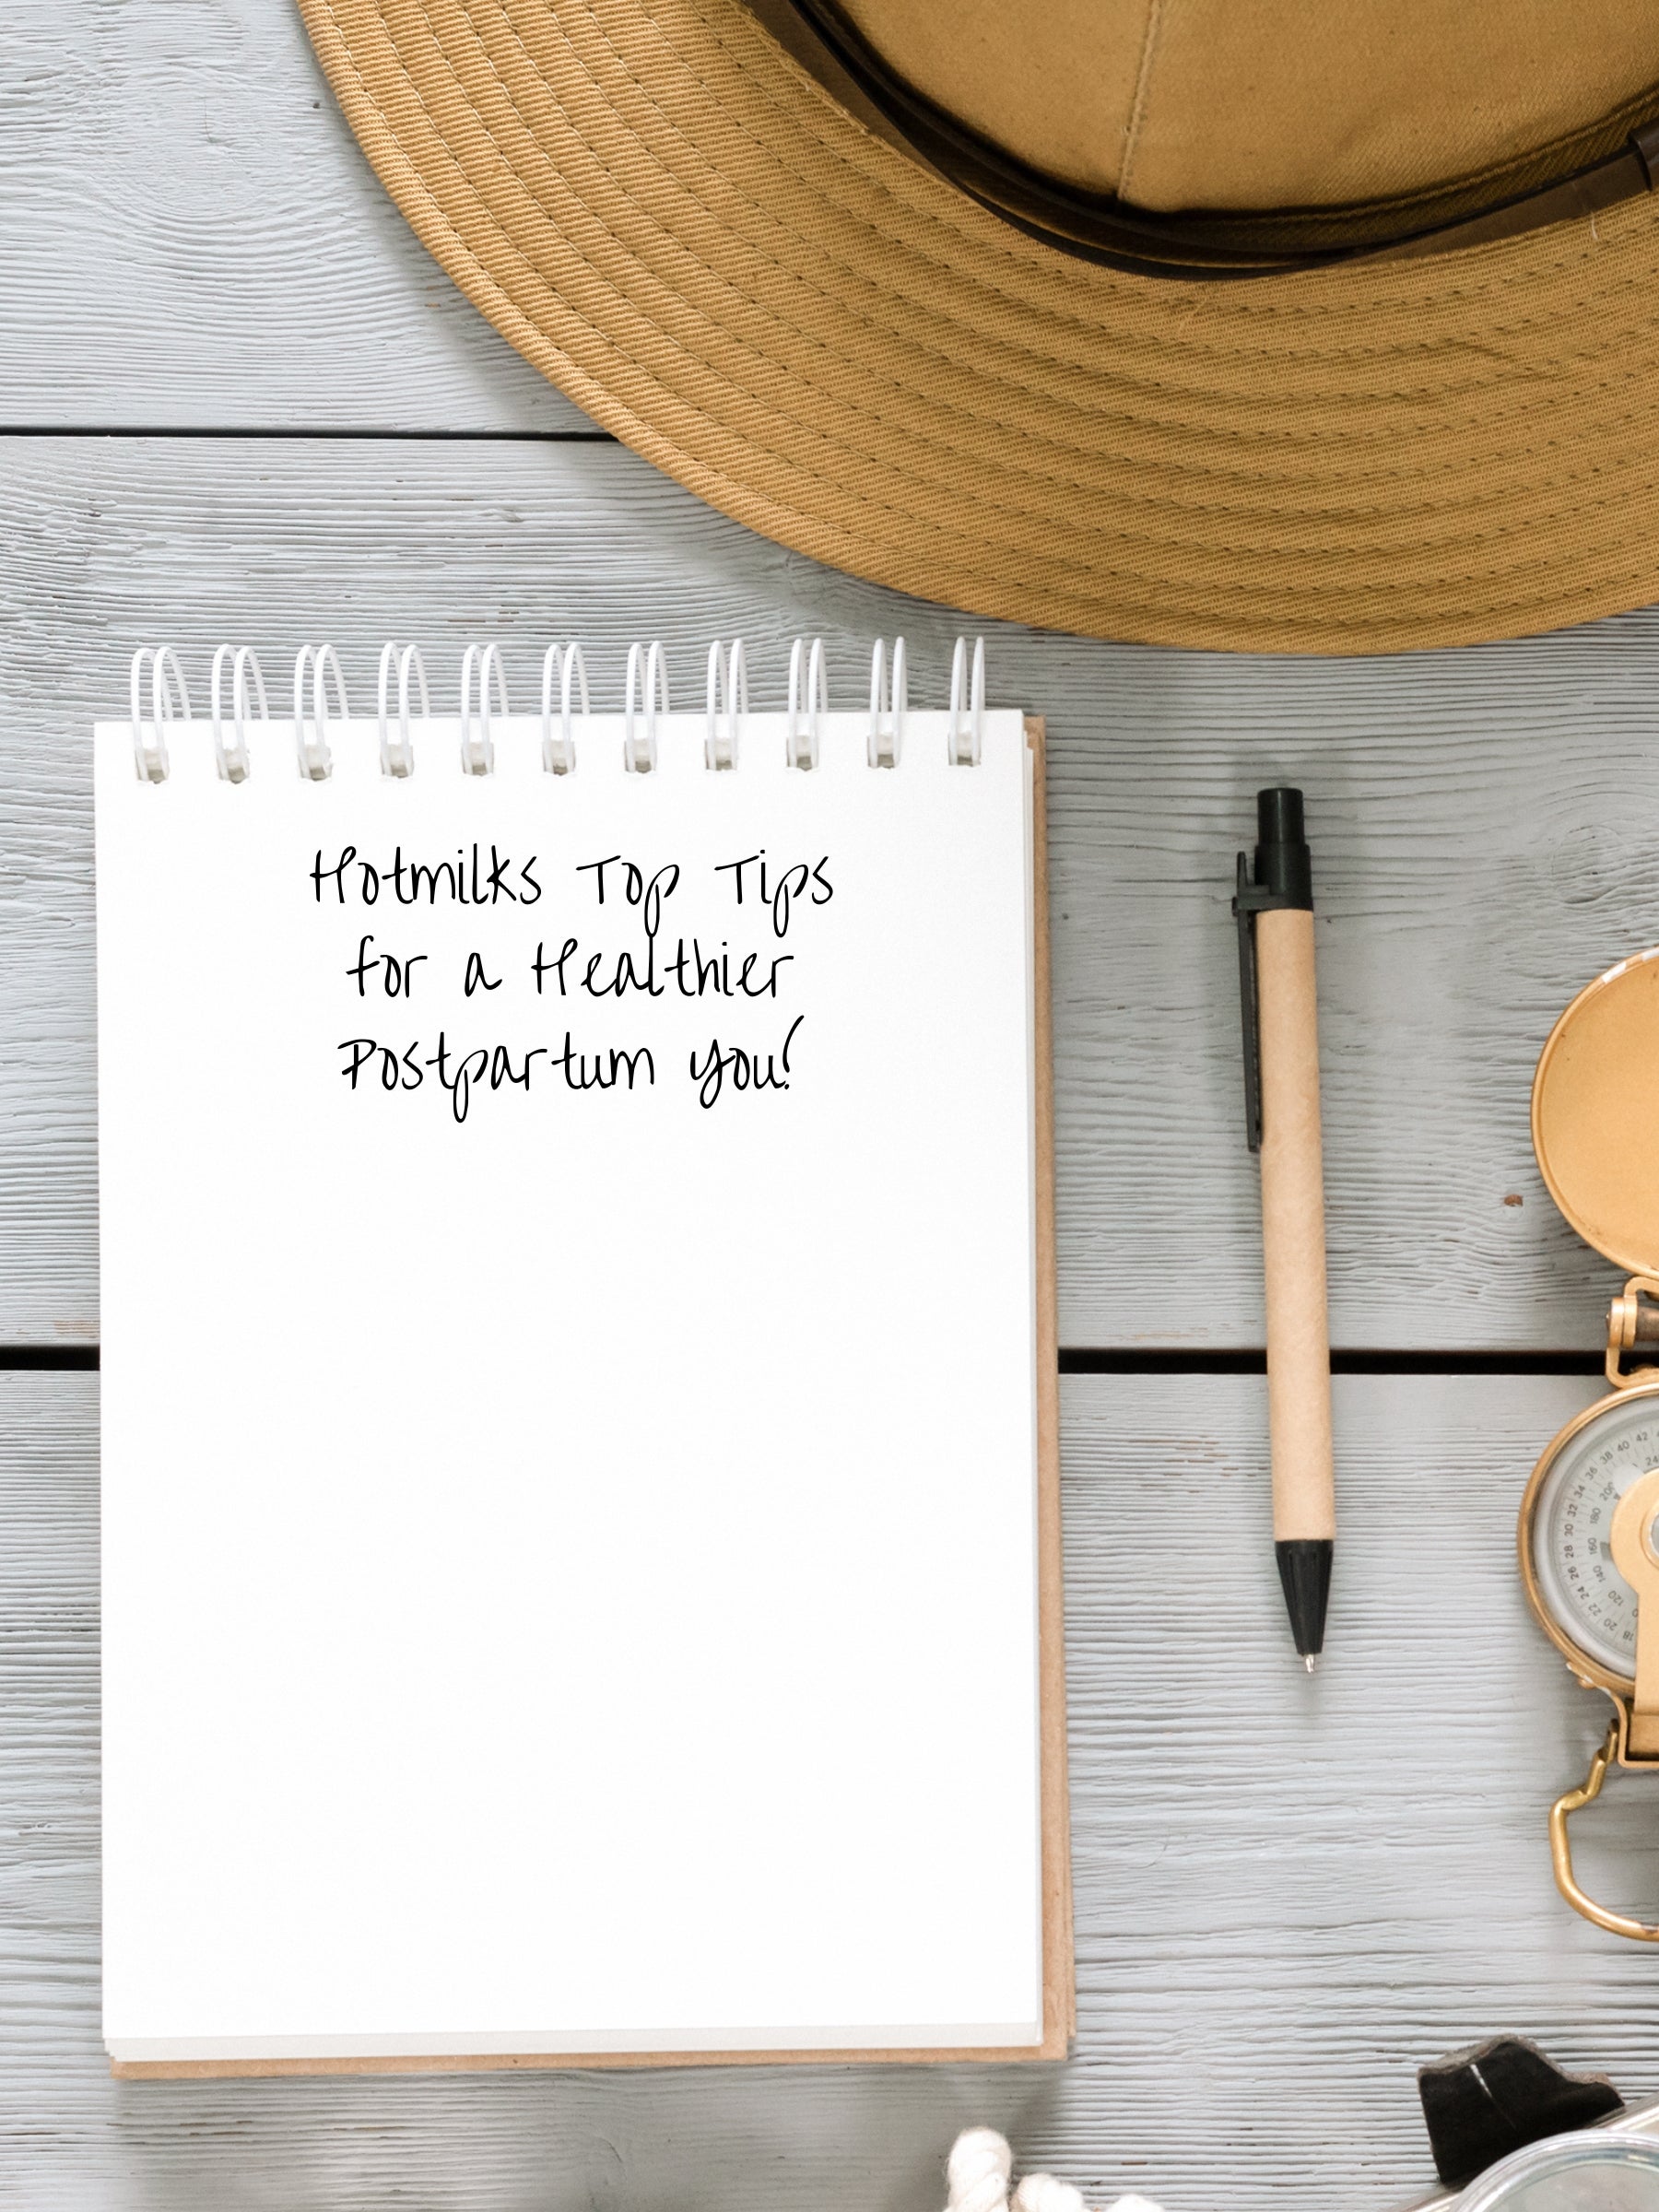 Hotmilks Top Tips
for a Healthier
Postpartum you!